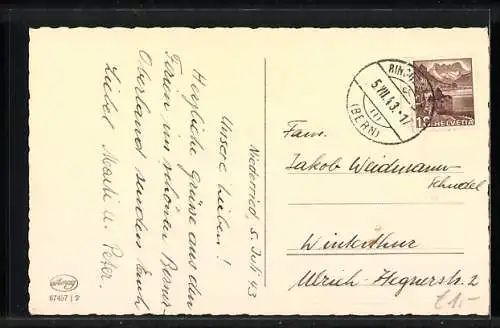 Niederried, 5. Juli 43
Unsere Lieben!
Herzliche Grüsse aus den
Ferien im schönen Berner-
Oberland senden Euch
Liesel Marti u. Peter.
Fam.
Jakob Weidmann-
Schudel
Winterthur
Ulrich-Hegnerstr. 2
RING
5.VII.43.-7
(BERN)
HELVETIA
67457
€1.-